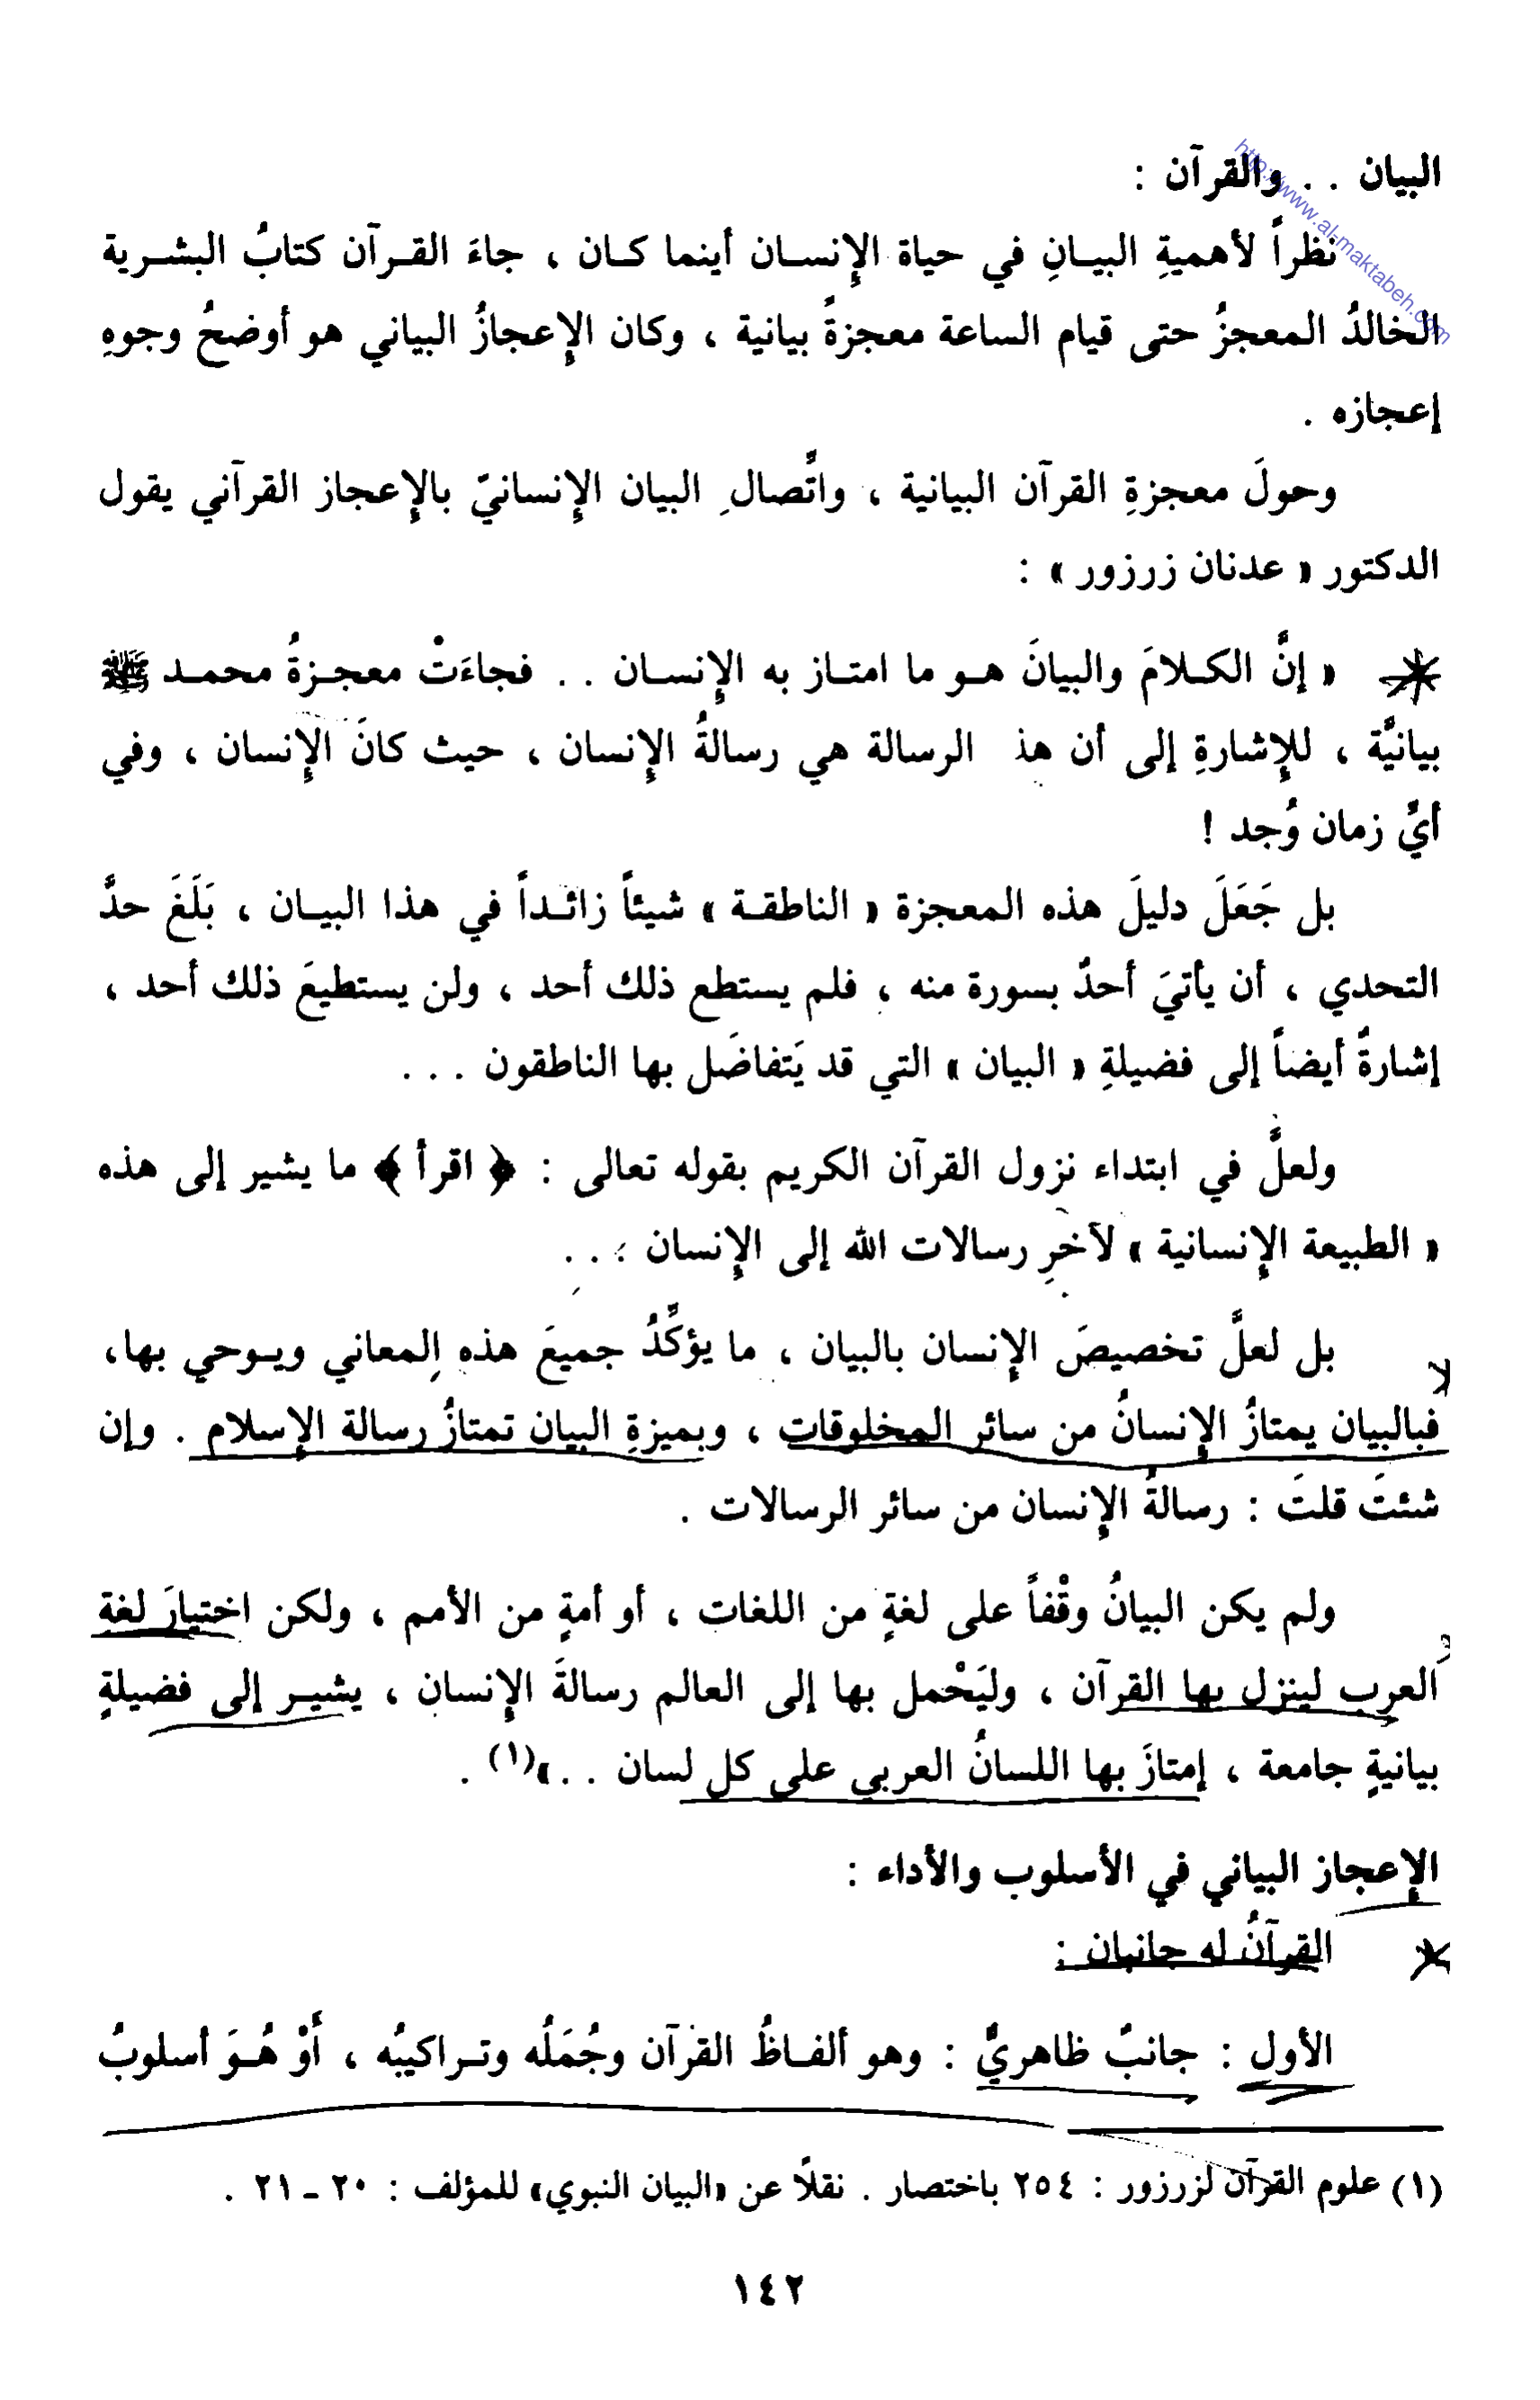 http://www.al-maktabeh.com
البيان . . والقرآن :
نظراً لأهميةِ البيـانِ في حياة الإنسـان أينما كـان ، جاءَ القـرآن كتابُ البشـرية
الخالدُ المعجزُ حتى قيام الساعة معجزةً بيانية ، وكان الإعجازُ البياني هو أوضحُ وجوهِ
إعجازه .
وحولَ معجزةِ القرآن البيانية ، واتِّصالِ البيان الإنسانيّ بالإعجاز القرآني يقول
الدكتور « عدنان زرزور » :
« إنَّ الكـلامَ والبيانَ هـو ما امتـاز به الإنسـان . . فجاءَتْ معجـزةُ محمـد ﷺ
بيانيَّة ، للإشارةِ إلى أن هذ الرسالة هي رسالةُ الإنسان ، حيث كانَ الإنسان ، وفي
أيِّ زمان وُجد !
بل جَعَلَ دليلَ هذه المعجزة « الناطقـة » شيئاً زائـداً في هذا البيـان ، بَلَغَ حدَّ
التحدي ، أن يأتيَ أحدٌ بسورة منه ، فلم يستطع ذلك أحد ، ولن يستطيعَ ذلك أحد ،
إشارةً أيضاً إلى فضيلةِ « البيان » التي قد يَتفاضَل بها الناطقون . . .
ولعلَّ في ابتداء نزول القرآن الكريم بقوله تعالى : ﴿ اقرأ ﴾ ما يشير إلى هذه
« الطبيعة الإنسانية » لآخرِ رسالات الله إلى الإنسان . . .
بل لعلَّ تخصيصَ الإنسان بالبيان ، ما يؤكِّدُ جميعَ هذه المعاني ويـوحي بها،
فبالبيان يمتازُ الإنسانُ من سائر المخلوقات ، وبميزةِ البيان تمتازُ رسالة الإسلام . وإن
شئتَ قلتَ : رسالةُ الإنسان من سائر الرسالات .
ولم يكن البيانُ وقْفاً على لغةٍ من اللغات ، أو أمةٍ من الأمم ، ولكن اختيارَ لغةِ
العرب لينزل بها القرآن ، وليَحْمل بها إلى العالم رسالةَ الإنسان ، يشيـر إلى فضيلةٍ
بيانيةٍ جامعة ، إمتازَ بها اللسانُ العربي على كل لسان . . »(١) .
الإعجاز البياني في الأسلوب والأداء :
القرآنُ له جانبان :
الأول : جانبٌ ظاهريٌّ : وهو ألفـاظُ القرآن وجُمَلُه وتـراكيبُه ، أَوْ هُـوَ أسلوبُ
(١) علوم القرآن لزرزور : ٢٥٤ باختصار . نقلاً عن «البيان النبوي» للمؤلف : ٢٠ - ٢١ .
١٤٢